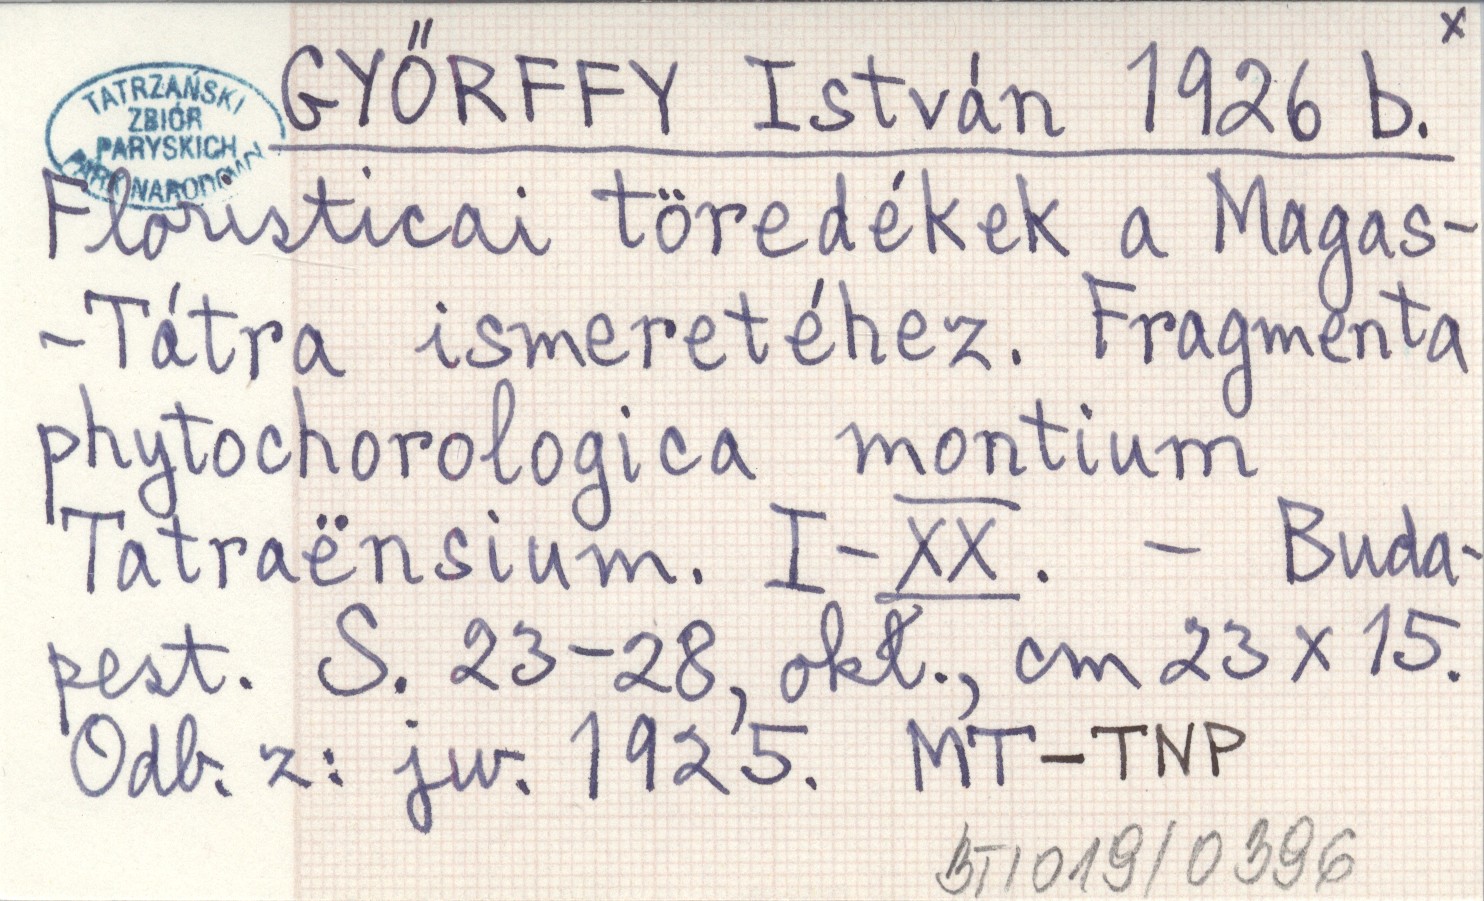 x
GYŐRFFY István 1926 b.
TATRZAŃSKI
ZBIÓR
PARYSKICH
PARK NARODOWY
Floristicai töredékek a Magas-
-Tátra ismeretéhez. Fragmenta
phytochorologica montium
Tatraënsium. I-XX. - Buda-
pest. S. 23-28, okł., cm 23 x 15.
Odb. z: jw. 1925. MT-TNP
BT/019/0396